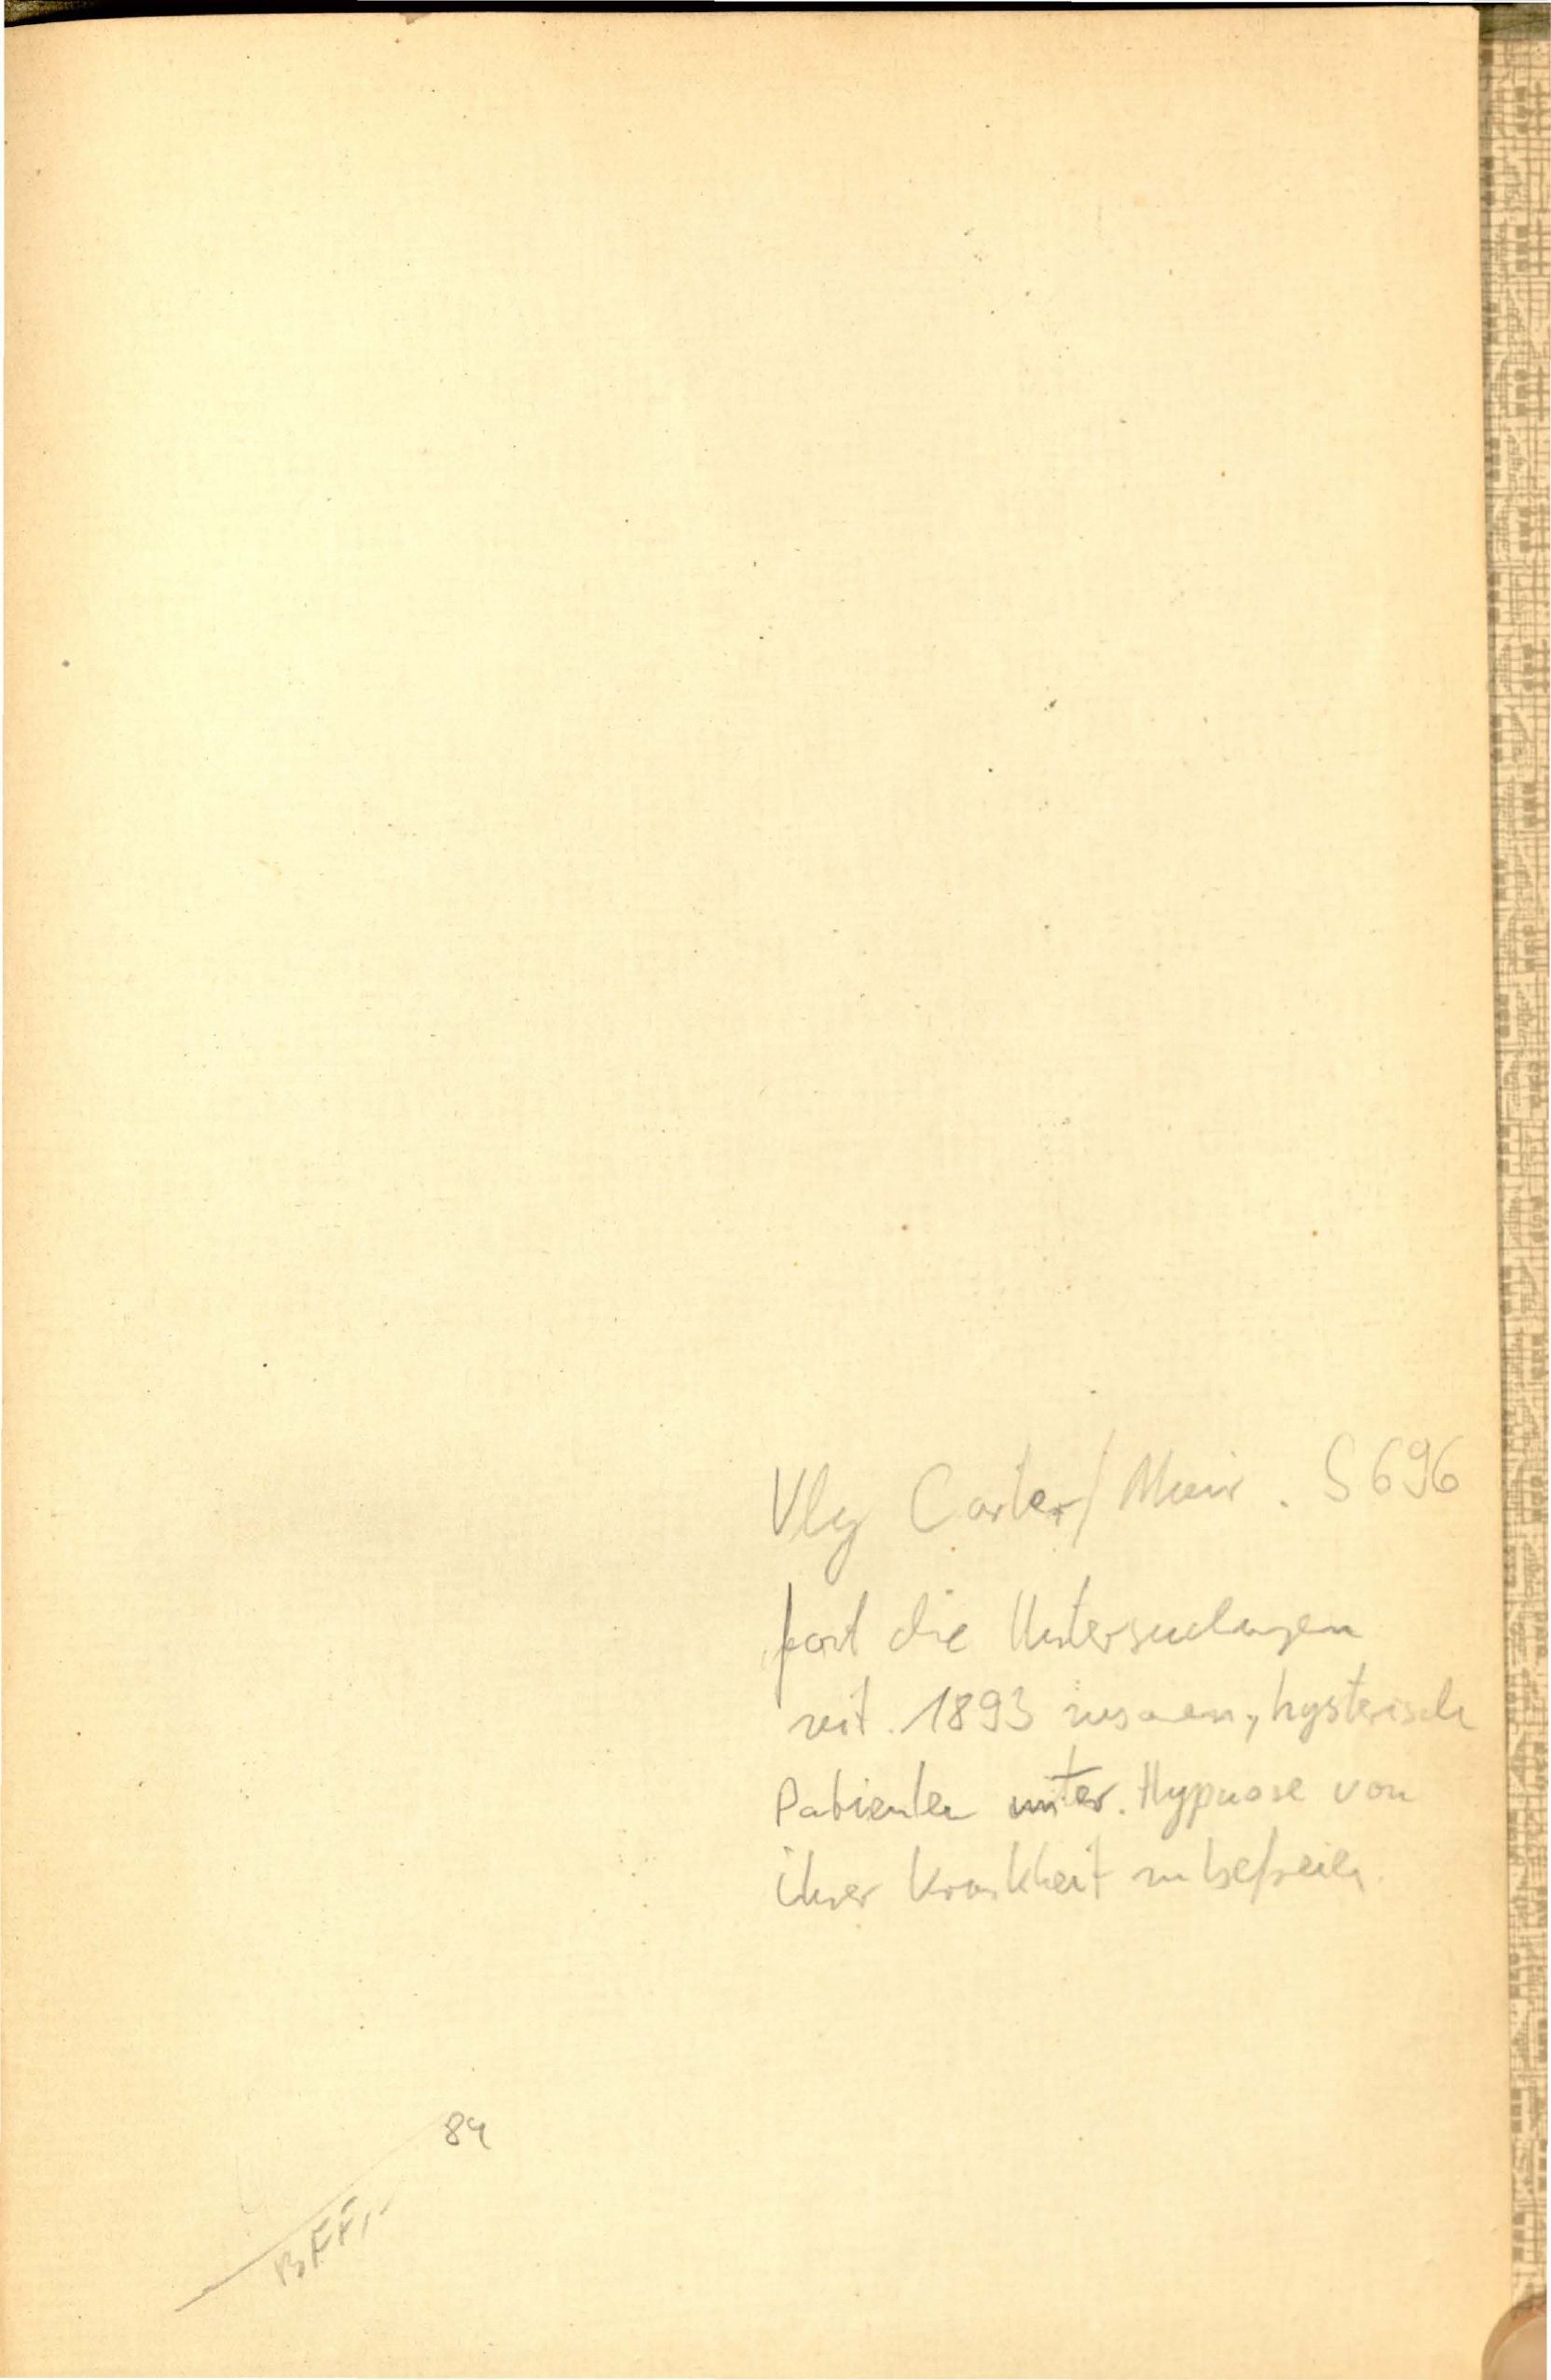 Vlg Carter/Muir. S 696
fast die Untersuchungen
seit 1893 zusamen, hysterische
Patienten unter Hypnose von
ihrer Krankheit zu befreien.
84